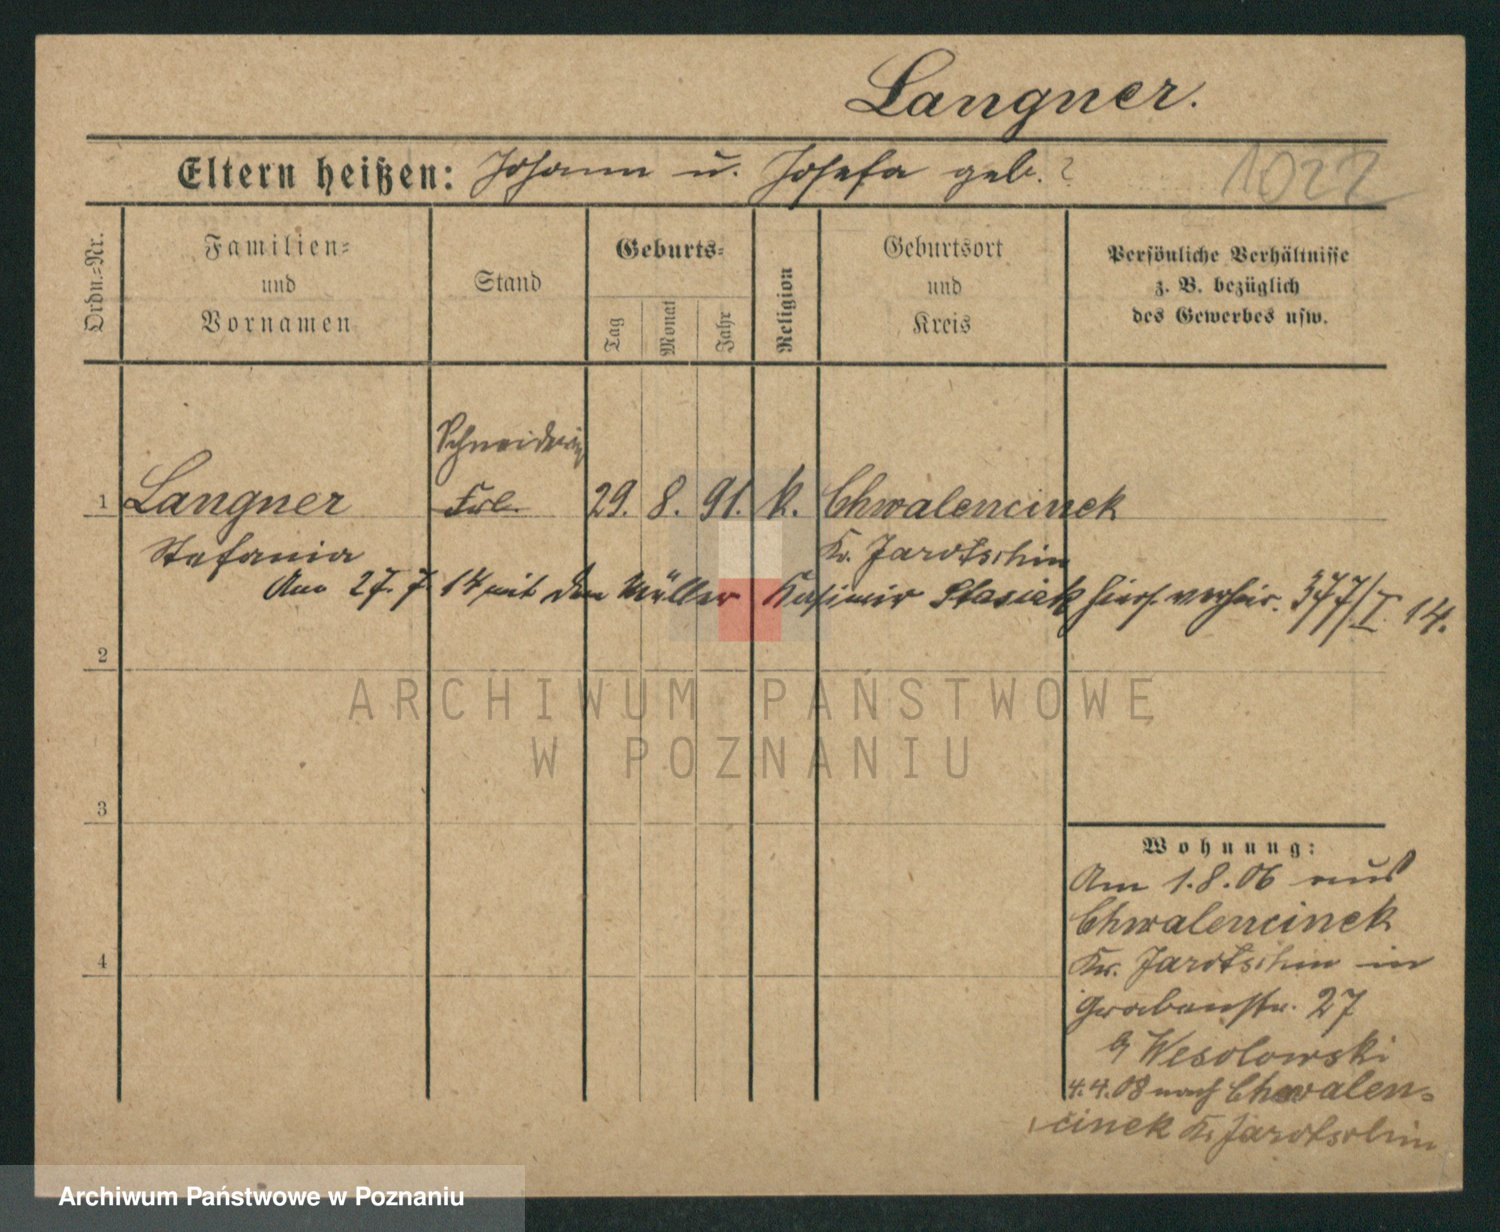 Langner.
Eltern heißen: Johann u. Josefa geb. ?
1022
Ordn.-Nr.
Familien-
und
Vornamen
Stand
Geburts-
Tag
Monat
Jahr
Religion
Geburtsort
und
Kreis
Persönliche Verhältnisse
z. B. bezüglich
des Gewerbes usw.
Schneiderin
1 Langner Frl. 29. 8. 91. k. Chwalencinek
Stefania Kr. Jarotschin
Am 27. 7 14 mit dem Müller Kasimir Stasiek hier verheir. 377/I 14.
2
ARCHIWUM PAŃSTWOWE
W POZNANIU
3
4
Wohnung:
Am 1.8.06 aus
Chwalencinek
Kr. Jarotschin in
Grabenstr. 27
b/ Wesolowski
4.4.08 nach Chwalen-
cinek Kr. Jarotschin
Archiwum Państwowe w Poznaniu